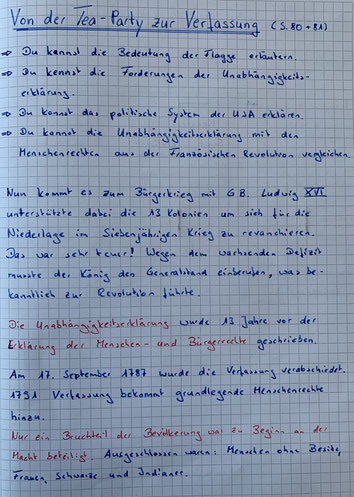 Von der Tea-Party zur Verfassung (S. 80 + 81)
⇒ Du kannst die Bedeutung der Flagge erläutern.
⇒ Du kennst die Forderungen der Unabhängigkeits-
erklärung.
⇒ Du kannst das politische System der USA erklären.
⇒ Du kannst die Unabhängigkeitserklärung mit den
Menschenrechten aus der Französischen Revolution vergleichen.
Nun kommt es zum Bürgerkrieg mit GB. Ludwig XVI
unterstützte dabei die 13 Kolonien um sich für die
Niederlage im Siebenjährigen Krieg zu revanchieren.
Das war sehr teuer! Wegen dem wachsenden Defizit
musste der König den Generalstand einberufen, was be-
kanntlich zur Revolution führte.
Die Unabhängigkeitserklärung wurde 13 Jahre vor der
Erklärung der Menschen- und Bürgerrechte geschrieben.
Am 17. September 1787 wurde die Verfassung verabschiedet.
1791 Verfassung bekommt grundlegende Menschenrechte
hinzu.
Nur ein Bruchteil der Bevölkerung war zu Beginn an der
Macht beteiligt. Ausgeschlossen waren: Menschen ohne Besitz,
Frauen, Schwarze und Indianer.